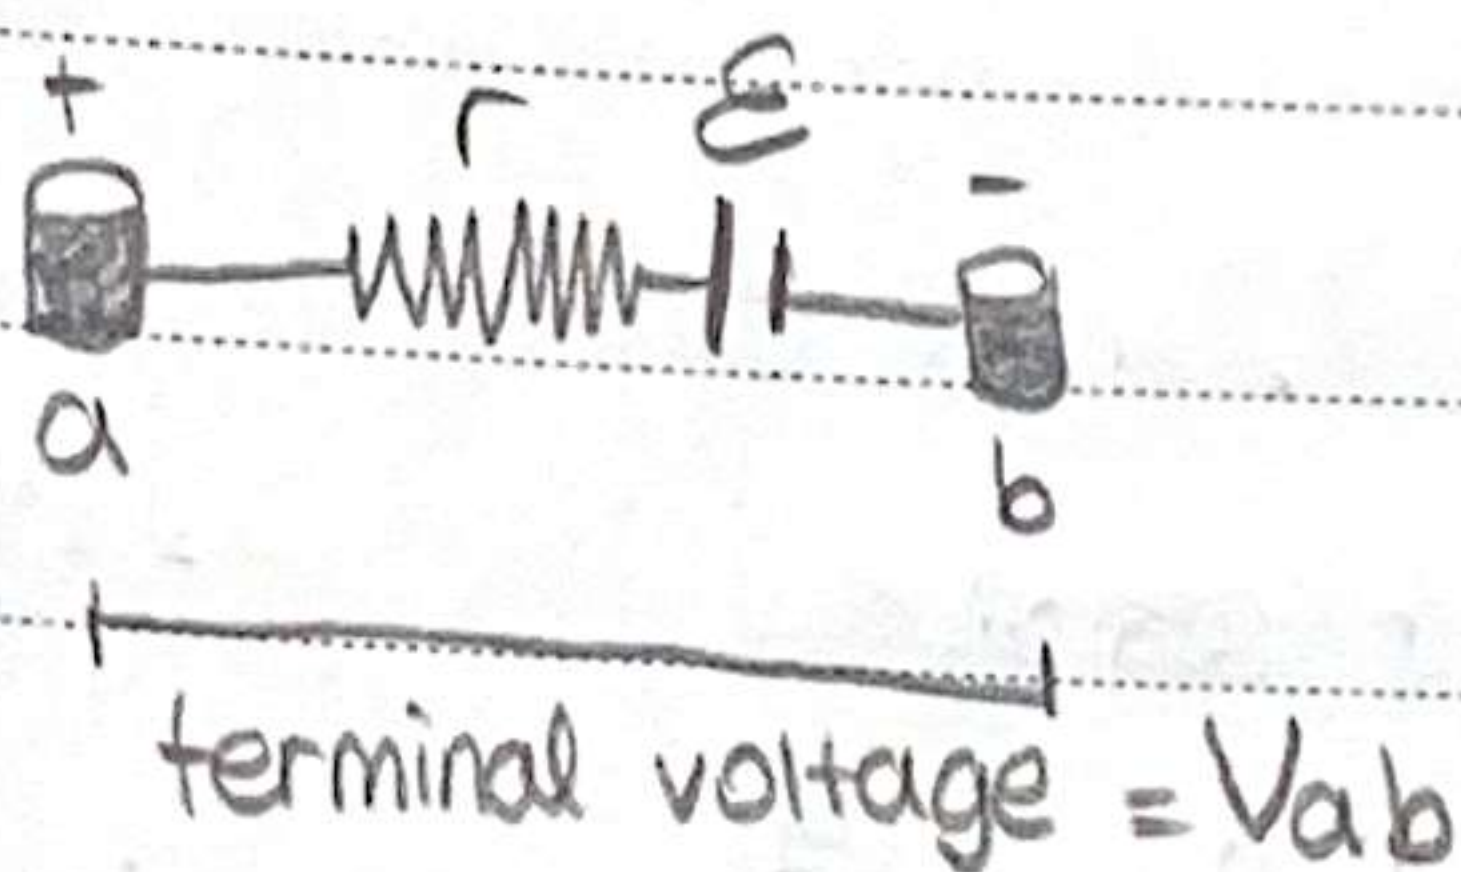 + r ℰ -
a b
terminal voltage = Vab